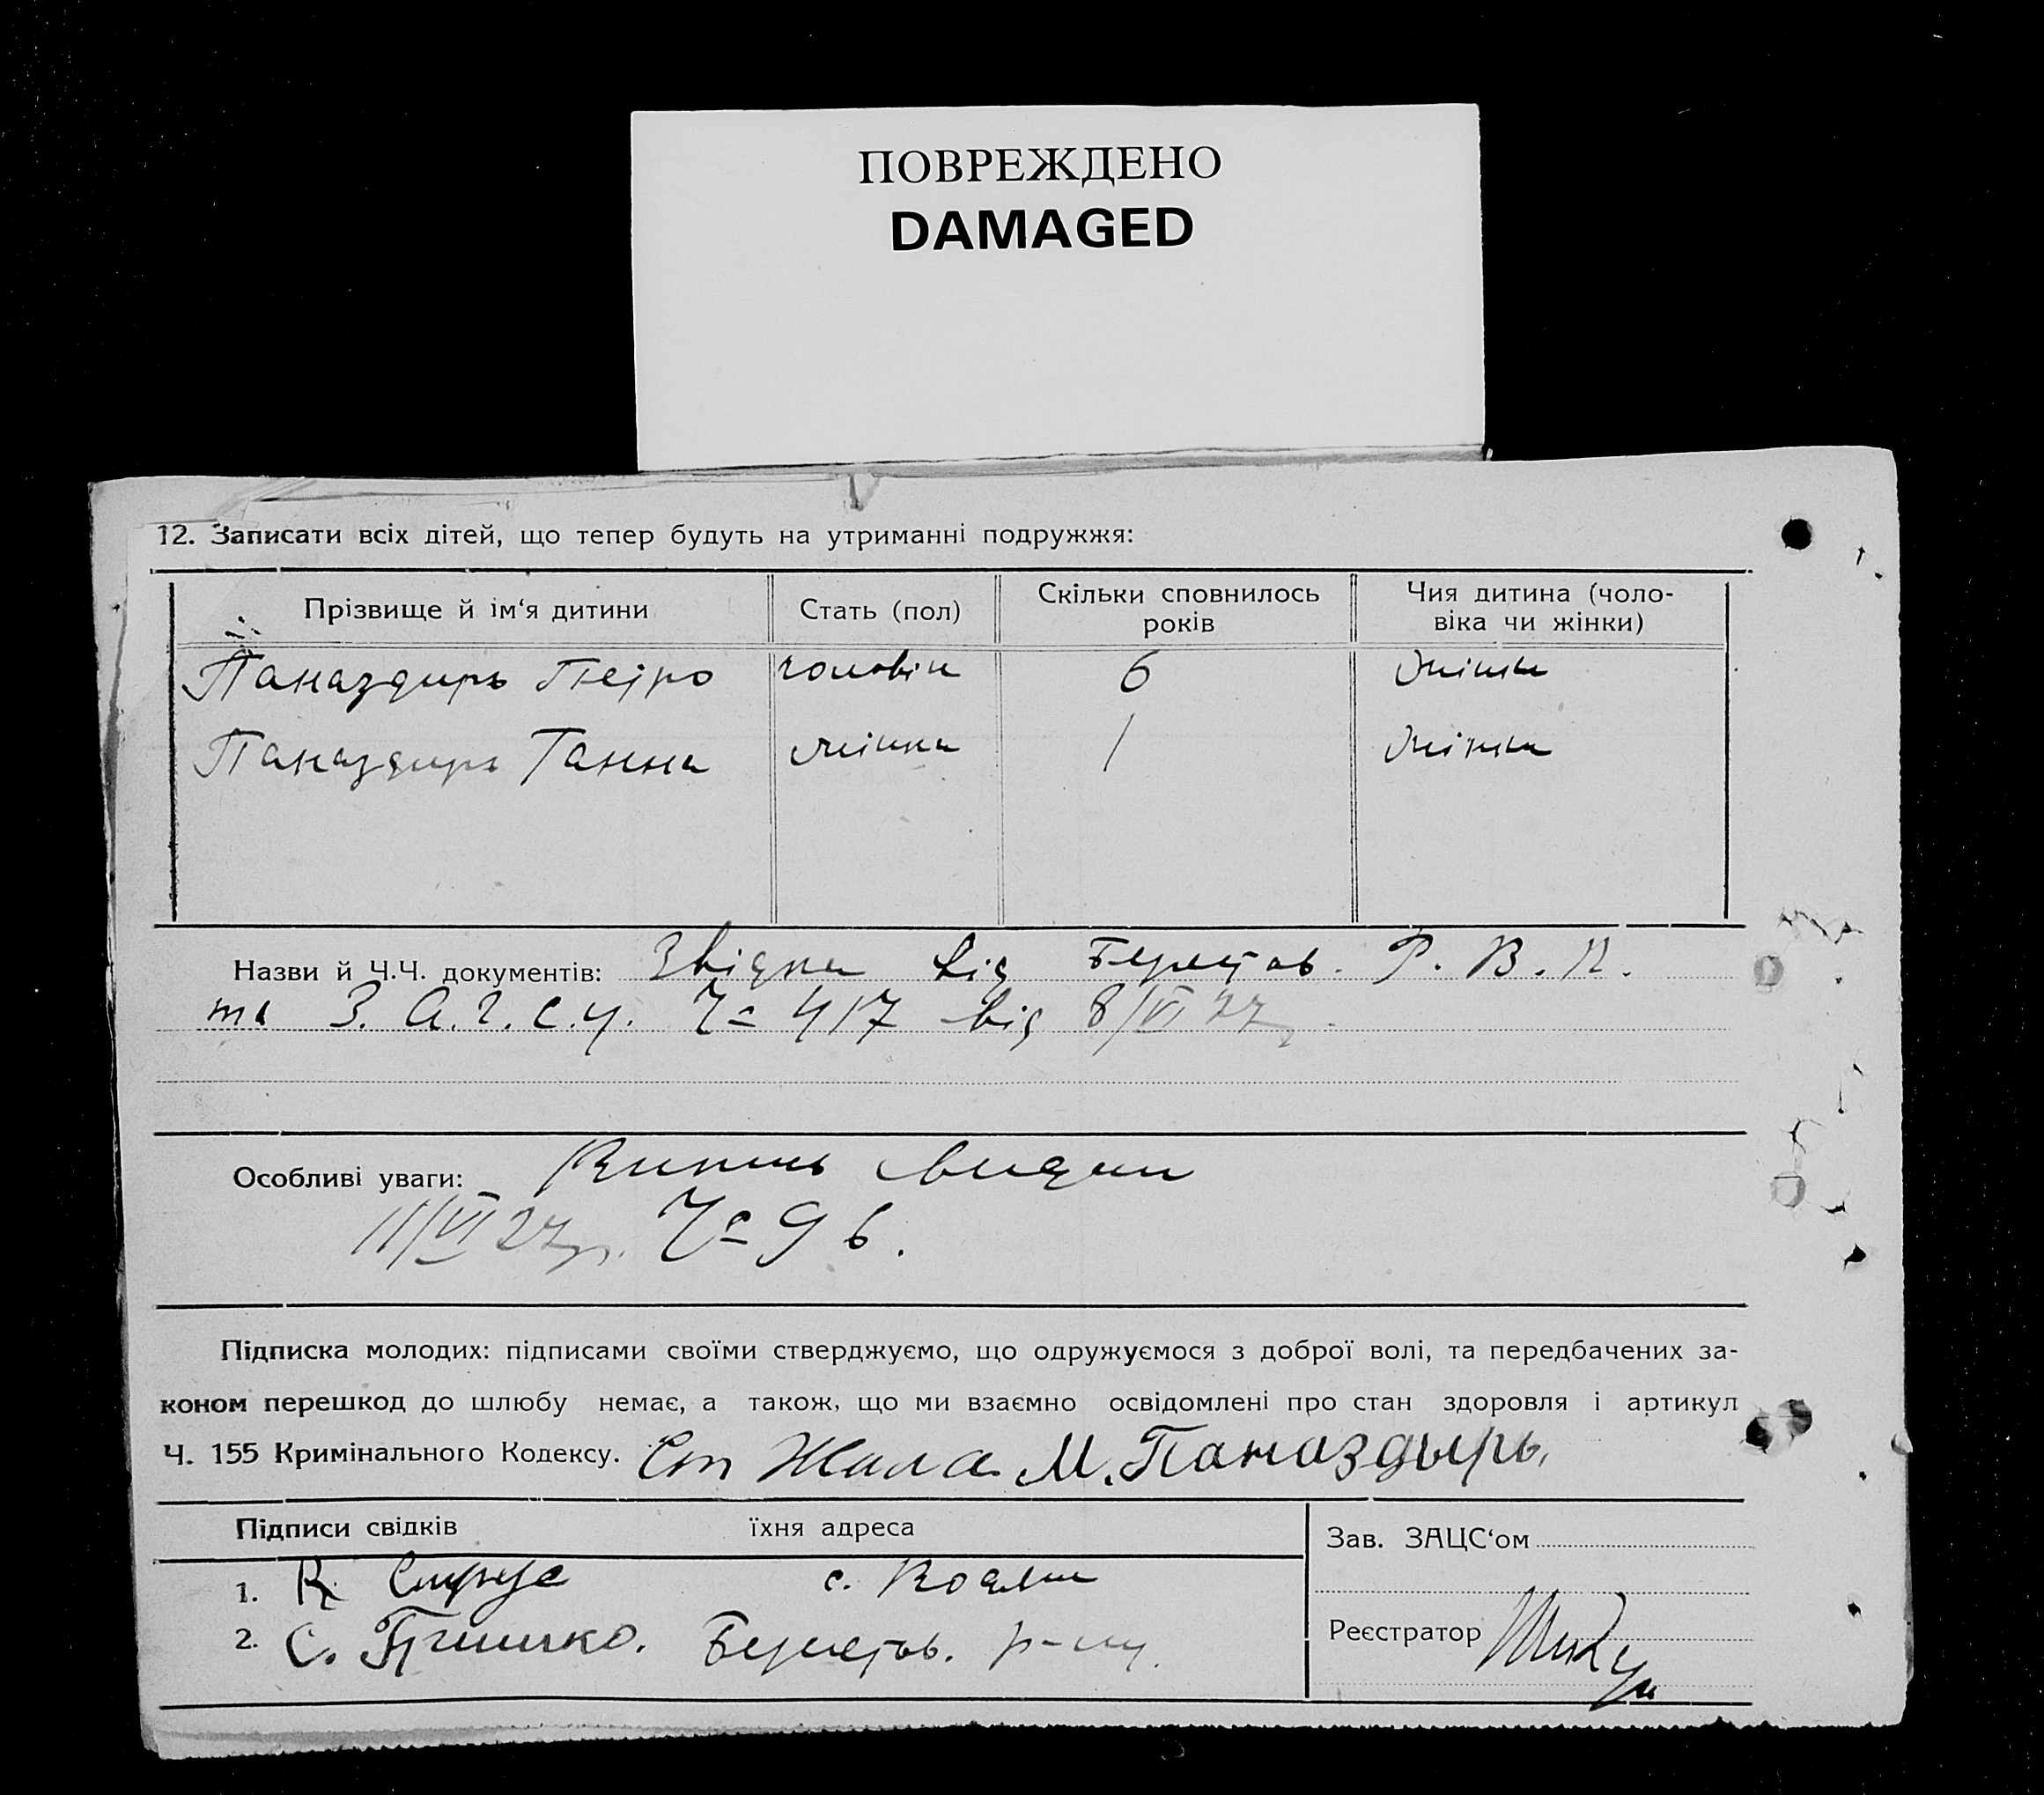 ПОВРЕЖДЕНО
DAMAGED
12. Записати всіх дітей, що тепер будуть на утриманні подружжя:
Прізвище й ім'я дитини Стать (пол) Скільки сповнилось років Чия дитина (чоловіка чи жінки)
Паназдирь Петро чоловік 6 жінки
Паназдирь Ганна жінка 1 жінки
Назви й Ч.Ч. документів: Звідка від Берестов. Р. В. К.
та З. А. Г. С. у. Ч= 417 від 8/VI 27
Особливі уваги: Випись видан
11/VI 27р. Ч= 96.
Підписка молодих: підписами своїми стверджуємо, що одружуємося з доброї волі, та передбачених за-
коном перешкод до шлюбу немає, а також, що ми взаємно освідомлені про стан здоровля і артикул
Ч. 155 Кримінального Кодексу. Жила М. Паназдырь
Підписи свідків їхня адреса Зав. ЗАЦС'ом
1. К. с.
2. С. Берестов. р-ну. Реєстратор